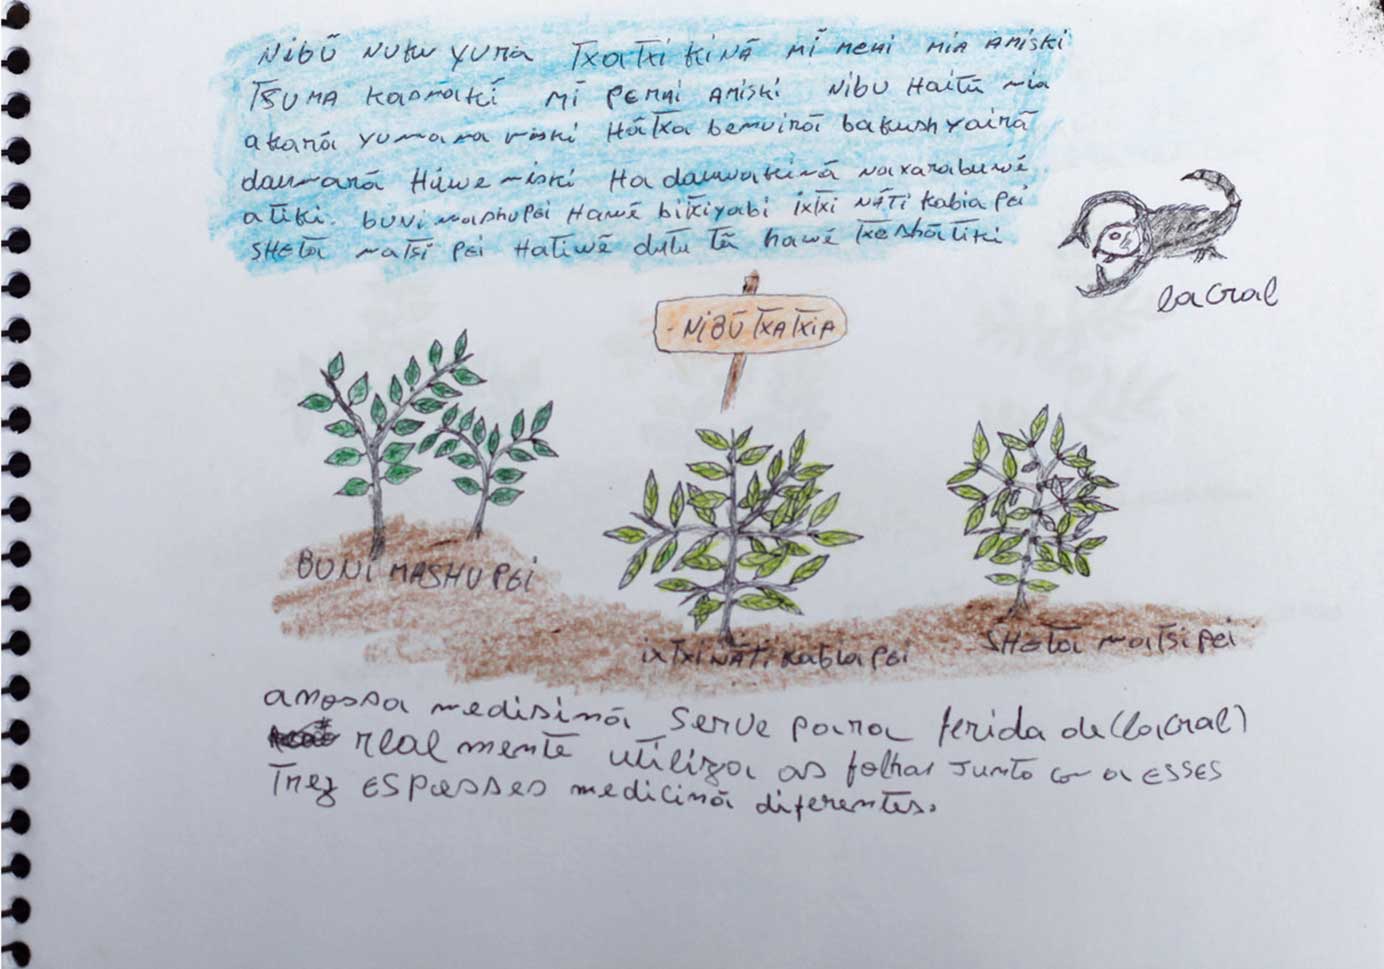 NiBŨ NUKU YURA TXATXi KiNÃ Mĩ MENi MiA AMiSKi
TSUMA KAOMAKĨ Mĩ PEMNi AMiSKi NiBU HAiTŨ MiA
AKANÃ YUMANA MiSKi HÃTXA BEMUiRÃ BAKUSHYAiRÃ
DAUMANÃ HŨWE MiSKi HA DAUWAKiNÃ NAXARABUWẼ
ATiKi. BUNi MASHU PEi HAWẼ BiKiYABi iXTXi NÃTi KABiA PEi
SHETÃ MATSi PEi HATiWẼ DUTU TÃ HAWẼ TXESHÃTiKi
laCral
NiBŨ TXATXiA
BUNi MASHU PEi
iXTXi NÃTi KABiA PEi
SHETÃ MATSi PEi
a nossa medisinã serve para ferida de (laCral)
realmente utiliza as folhas junto com a ESSES
Trez ESPæsses medicinã diferentes.